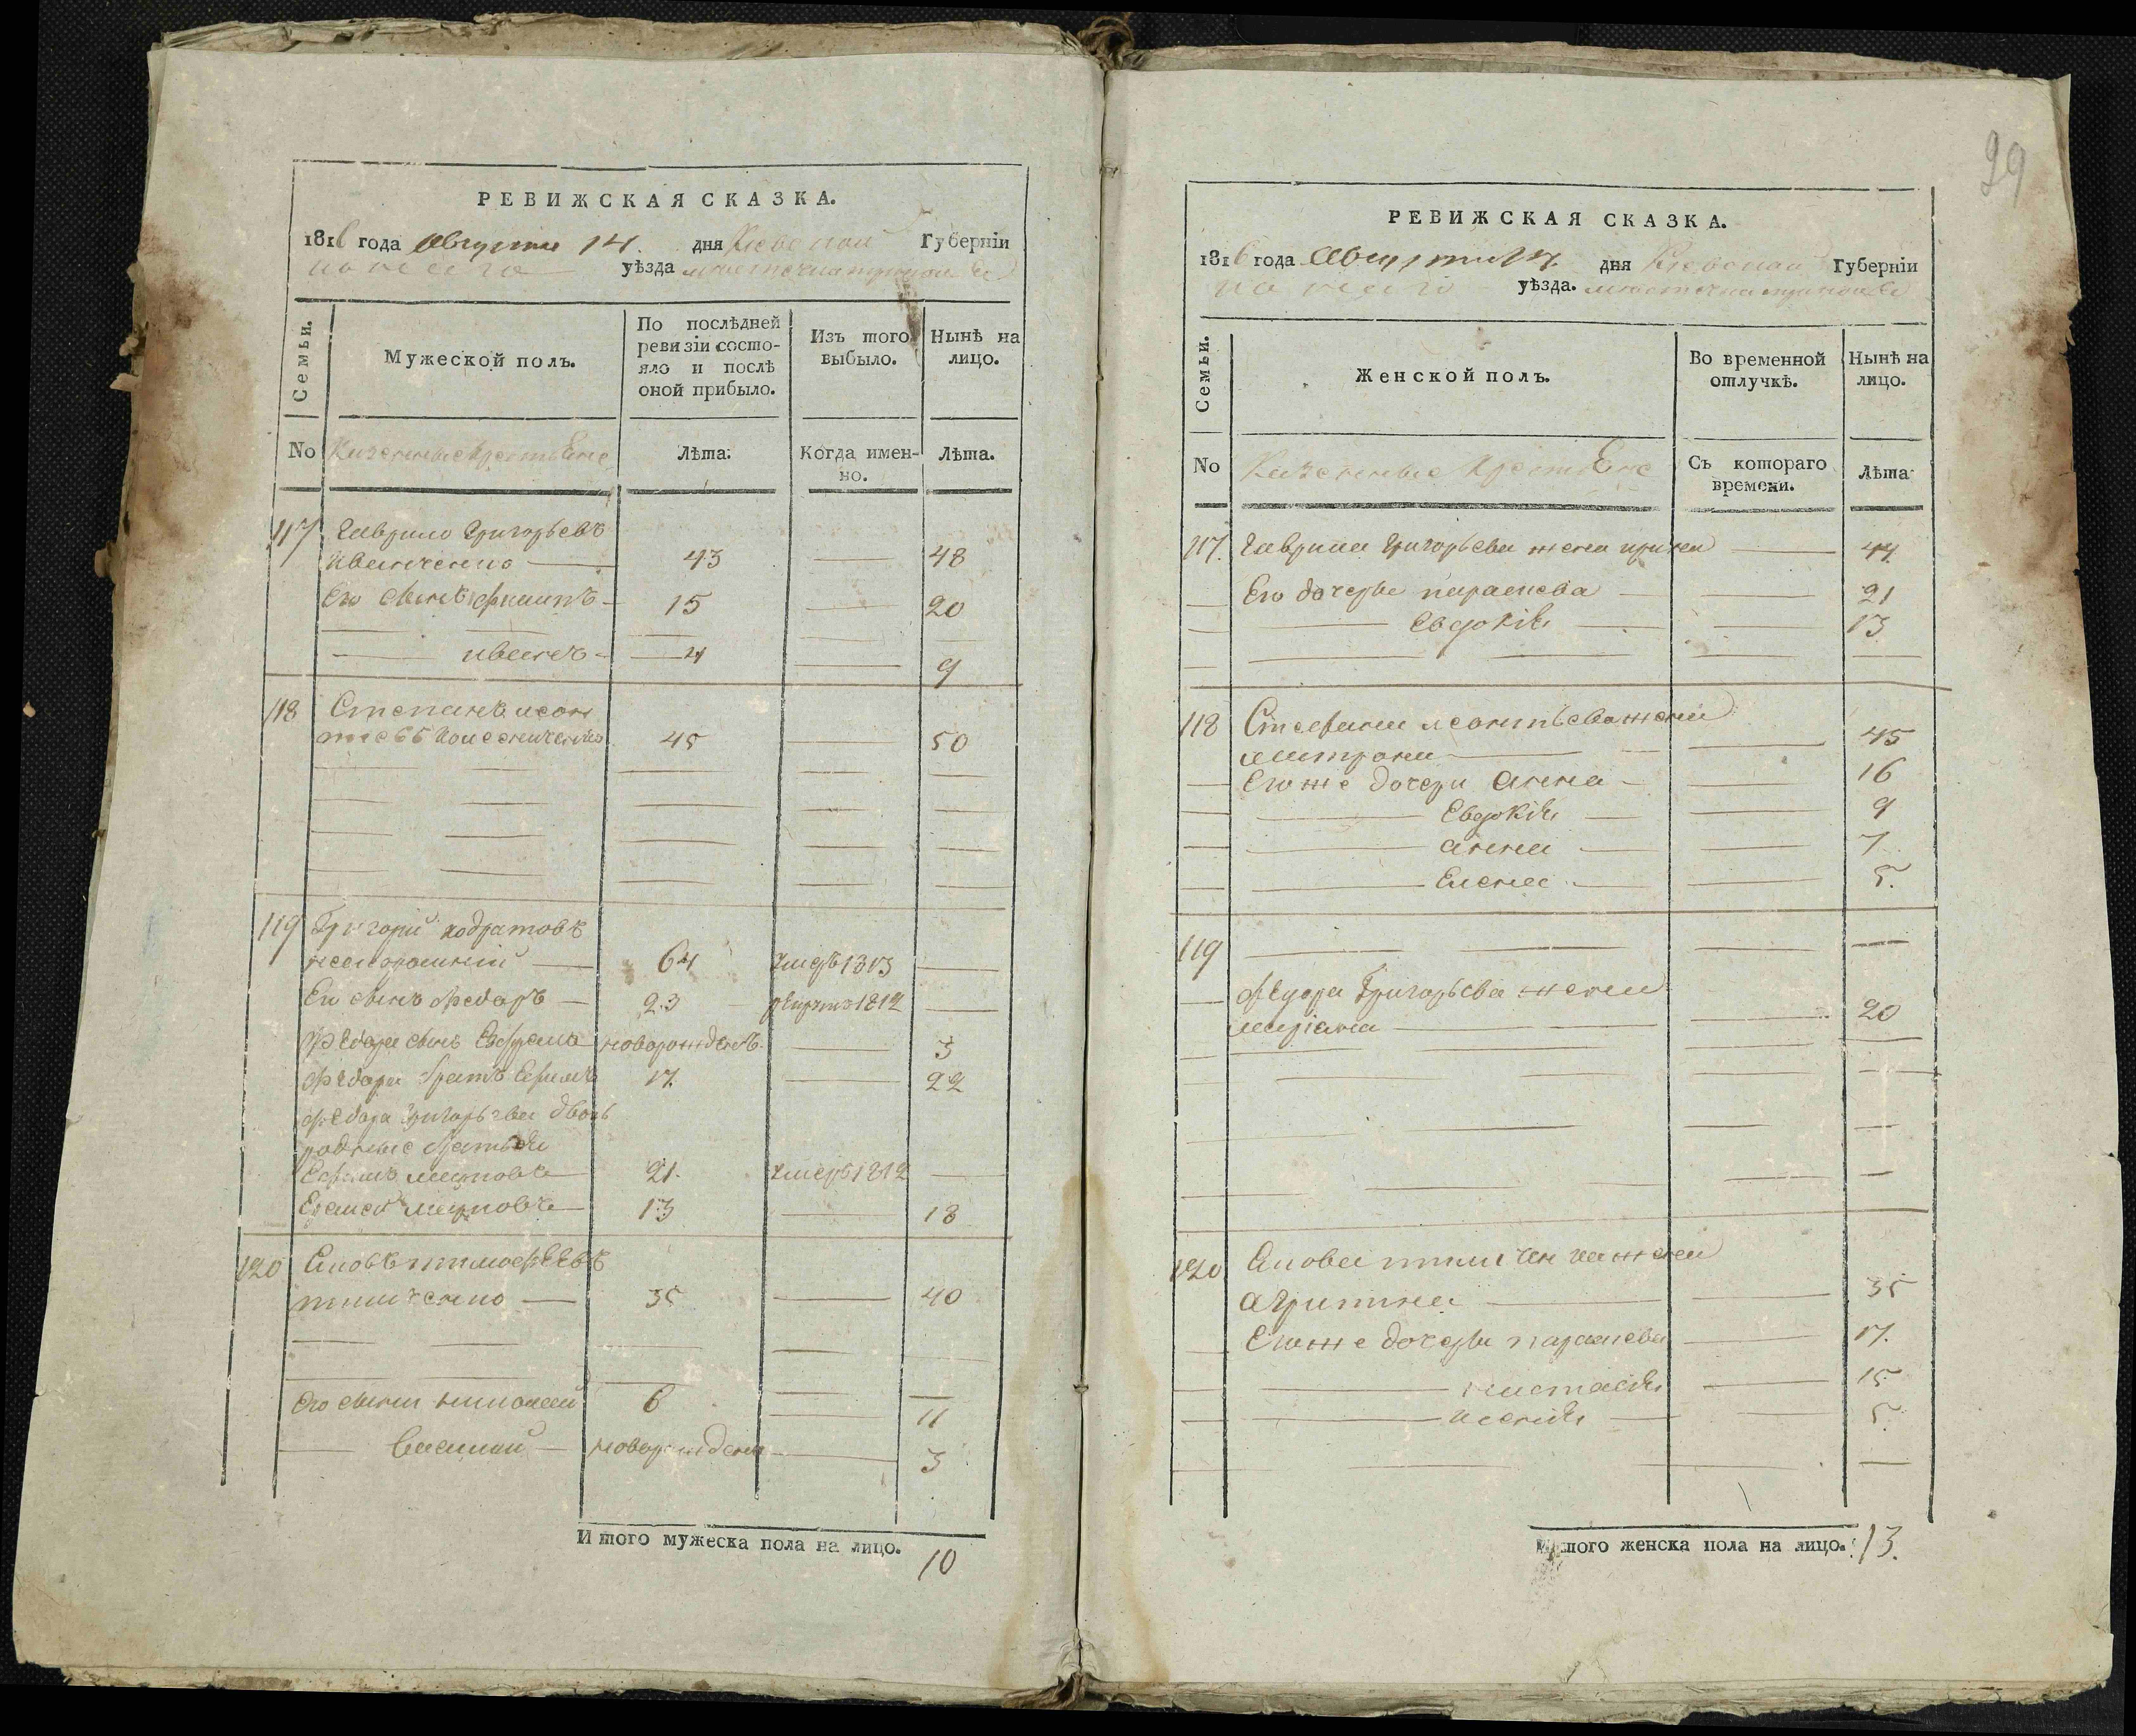 РЕВИЖСКАЯ СКАЗКА.
1816 года Августа 14. дня Киевской Губерніи
уѣзда
Семьи.
Мужеской полъ.
По послѣдней ревизіи состояло и послѣ оной прибыло.
Изъ того выбыло.
Нынѣ на лицо.
No Казенные крестьяне
Лѣта.
Когда именно.
Лѣта.
117 Гаврило Григорьевъ
Иванченко — 43 — 48
Его сынъ Филипъ — 15 — 20
— Иванъ — 4 — 9
118 Степанъ Леон
тьевъ 45 — 50
119 Григорій Кодратовъ
— 64 умеръ 1813 —
Его сынъ Федоръ — 23 рекрутъ 1812 —
Федора сынъ Ефремъ новорожденъ — 3
Федора братъ Ефимъ 17. — 22
Федора Григорьева двою
родные братья
Ефимъ 21. умеръ 1812 —
13 — 18
120 Тимофеевъ
35 — 40
Его сыны Николай 6 — 11
— Василий — новорожденъ — 3
Итого мужеска пола на лицо. 10
29
РЕВИЖСКАЯ СКАЗКА.
1816 года Августа 14. дня Киевской Губерніи
уѣзда.
Семьи.
Женской полъ.
Во временной отлучкѣ.
Нынѣ на лицо.
No Казенные Крестьяне
Съ котораго времени.
Лѣта
117. Гаврила Григорьева жена Ирина — 44
Его дочери Параскева — 21
— Евдокія — 13
118 Стефана Леонтьева жена
Матрона — 45
Его же дочери Анна — 16
— Евдокія — 9
— Анна — 7
— Елена — 5.
119
Федора Григорьева жена
Маріана — 20
120 жена
Агрипина — 35
Его же дочери Параскева — 17.
— Настасія — 15
— Ксенія — 5.
Итого женска пола на лицо. 13.